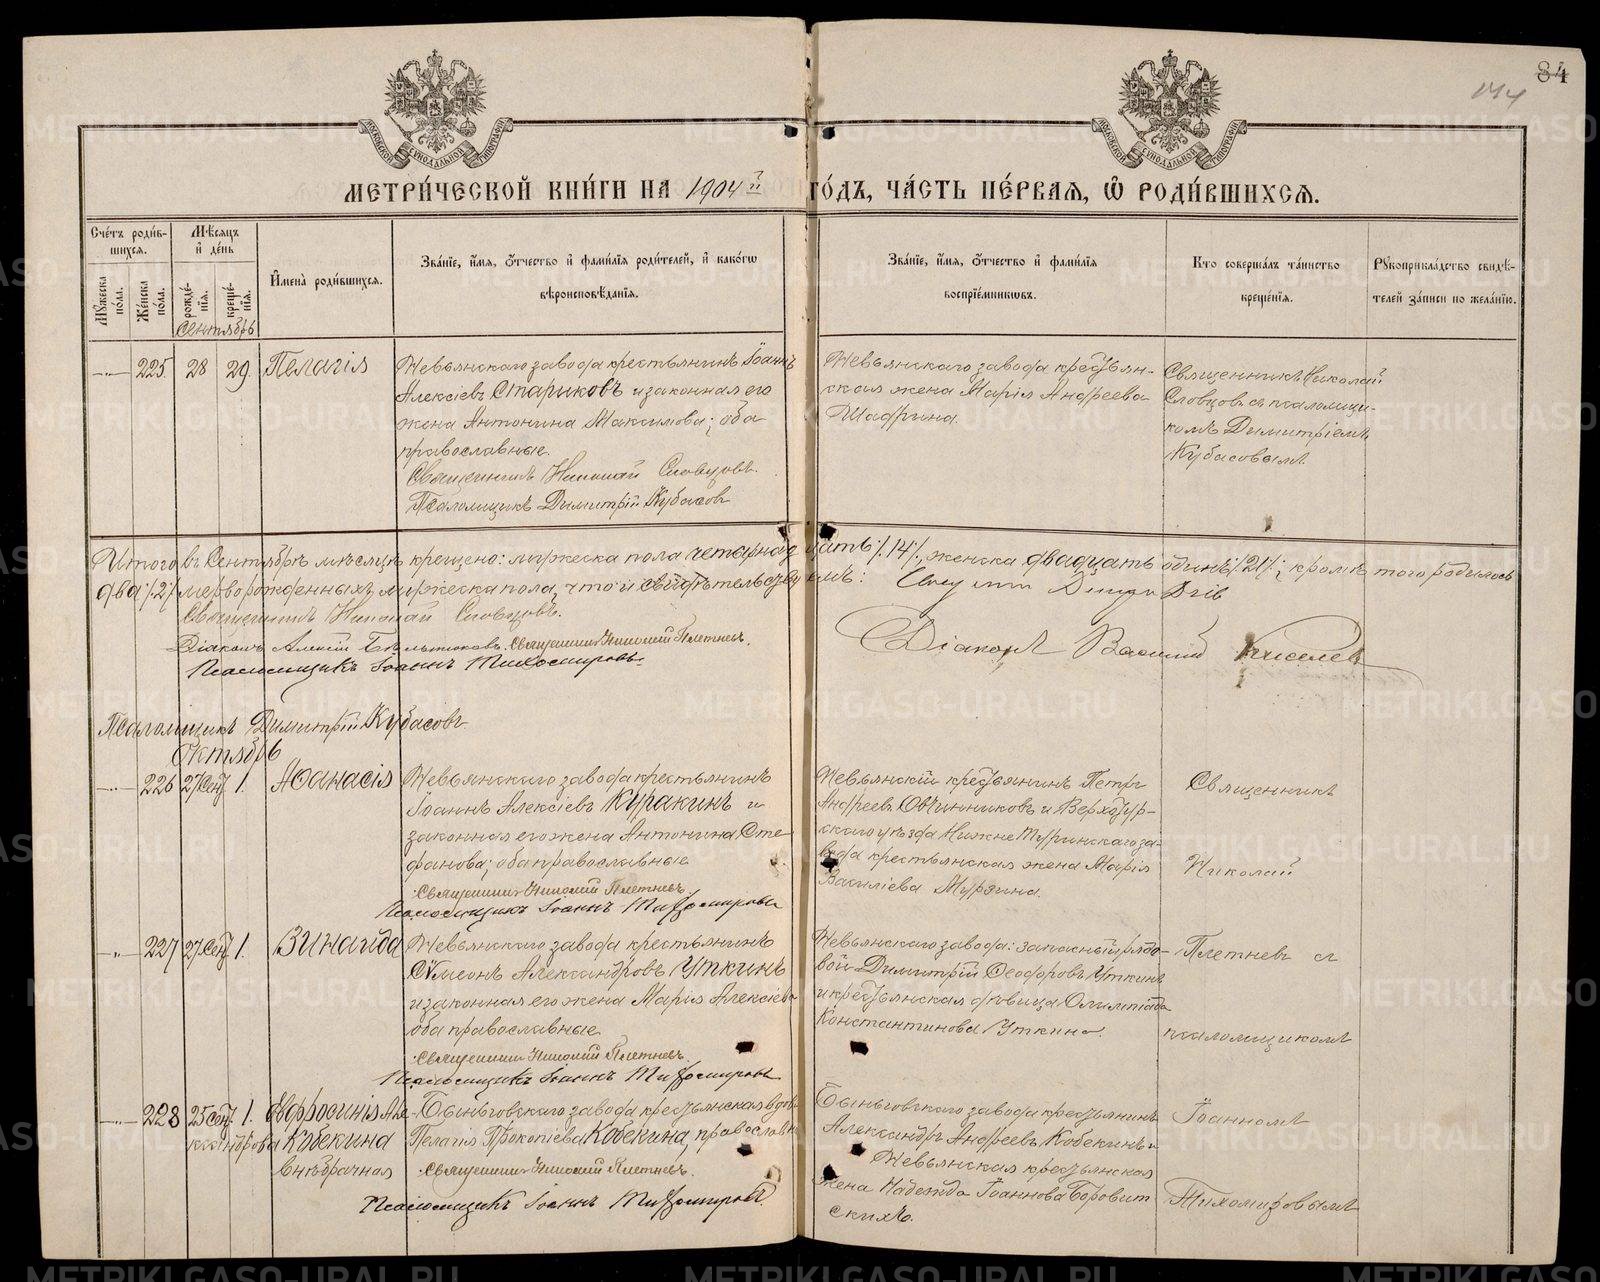 84
МЕТРИ́ЧЕСКОЙ КНИ́ГИ НА 1904 й ГО́ДЪ, ЧА́СТЬ ПЕ́РВАЯ, Ѡ РОДИ́ВШИХСЯ.
Сче́тъ роди́в-
шихся.
Мꙋ́жеска по́ла.
Же́нска по́ла.
Мѣ́сяцъ и де́нь
рожде́-
нїя.
креще́-
нїя.
Имена̀ роди́вшихся.
Зва́нїе, и́мя, о́тчество и фами́лїя роди́телей, и како́гѡ
вѣроисповѣ́данїя.
Зва́нїе, и́мя, о́тчество и фами́лїя
воспрїе́мниковъ.
Кто соверша́лъ та́инство
креще́нїя.
Рꙋкоприкла́дство свидѣ́-
телей за́писи по жела́нїю.
Сентябрь
225. 28 29. Пелагія
Невьянскаго завода крестьянинъ Іоаннъ
Алексіевъ Стариковъ и законная его
жена Антонина Максимова; оба
православные.
Священникъ Николай Словцовъ.
Псаломщикъ Димитрій Кубасовъ
Невьянскаго завода крестьян-
ская жена Марія Андреева
Шафрина.
Священникъ Николай
Словцовъ съ псаломщи-
комъ Димитріемъ
Кубасовымъ.
Итого въ Сентябрѣ мѣсяцѣ крещено: мужеска пола четырнадцать /.14/., женска двадцать одинъ /.21/.; кромѣ того, родилось
два /.2/. мертворожденныхъ мужеска пола, что и свидѣтельствуемъ:
Священникъ Николай Словцовъ.
Діаконъ Алексій Священникъ Николай Плетневъ.
Псаломщикъ Іоаннъ Тихомировъ.
Діаконъ Василій Киселевъ
Псаломщикъ Димитрій Кубасовъ.
Октябрь
226 27 Сент. 1. Аѳанасія
Невьянскаго завода крестьянинъ
Іоаннъ Алексіевъ Куракинъ и
законная его жена Антонина Сте-
фанова; оба православные
Священникъ Николай Плетневъ.
Псаломщикъ Іоаннъ Тихомировъ
Невьянскій крестьянинъ Петръ
Андреевъ Овчинниковъ и Верхотур-
скаго уѣзда Нижне Туринскаго за-
вода крестьянская жена Марія
Василіева Мурзина.
227 27 Сент. 1. Зинаида
Невьянскаго завода крестьянинъ
Сѵмеонъ Александровъ Уткинъ
и законная его жена Марія Алексіева
оба православные
Священникъ Николай Плетневъ.
Псаломщикъ Іоаннъ Тихомировъ
Невьянскаго завода: запасный рядо-
вой Димитрій Ѳеодоровъ Уткинъ
и крестьянская дѣвица Олимпіада
Константинова Уткина.
228 25 Сент. 1. Евфросинія Але-
ксандрова Кобекина
внѣбрачная
Быньговскаго завода крестьянская вдова
Пелагія Прокопіева Кобекина, православн
Священникъ Николай Плетневъ.
Псаломщикъ Іоаннъ Тихомировъ
Быньговскаго завода крестьянинъ
Александръ Андреевъ Кобекинъ и
Невьянская крестьянская
жена Надежда Іоаннова Боровит-
скихъ.
Священникъ
Николай
Плетневъ съ
псаломщикомъ
Іоанномъ
Тихомировымъ
METRIKI.GASO-URAL.RU